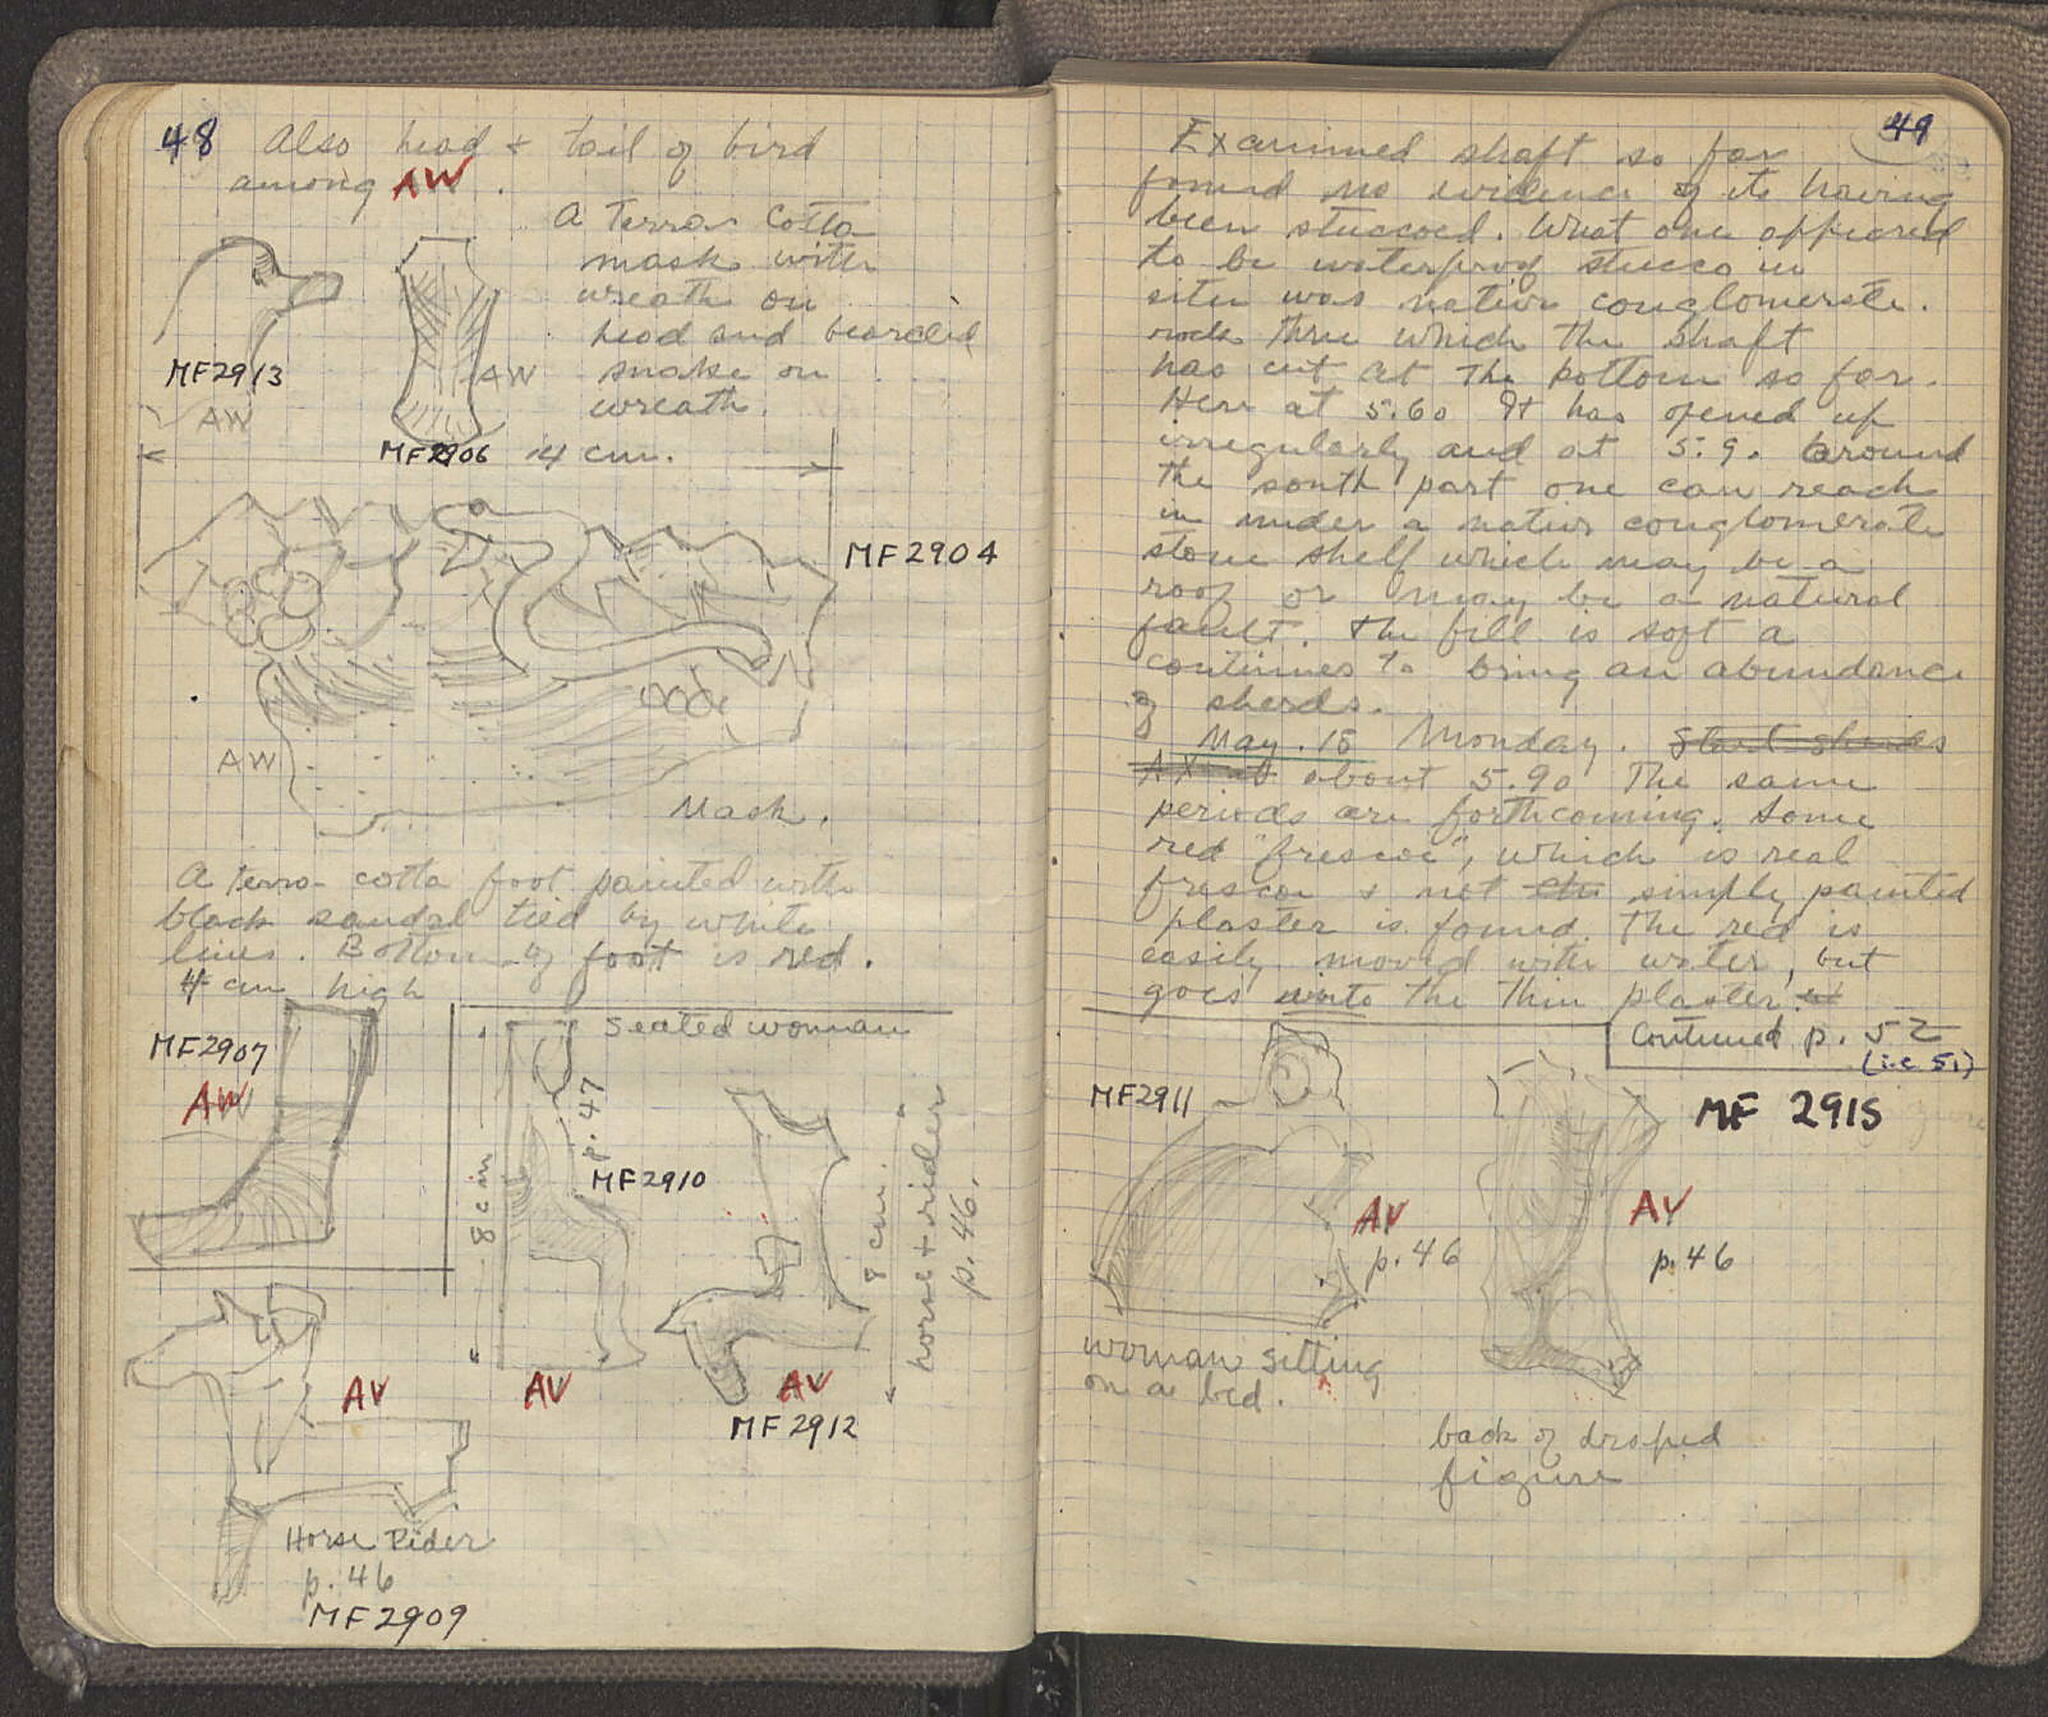 48 Also head & tail of bird
among AW.
A Terra Cotta
mask with
wreath on
head and bearded
snake on
wreath.
MF2913
AW
AW
MF2906 14 cm.
MF2904
AW
Mask.
A terra-cotta foot painted with
black sandal tied by white
lines. Bottom of foot is red.
4 cm high
MF2907
AW
seated woman
p. 47
8 cm
MF2910
AV
8 cm.
horse + rider
p. 46.
AV
MF2912
AV
Horse Rider
p. 46
MF2909
49
Examined shaft so far
found no evidence of its having
been stuccoed. What one appeared
to be waterproof stucco in
situ was native conglomerate.
rock thru which the shaft
has cut at the bottom so far.
Here at 5.60 It has opened up
irregularly and at 5.9. around
the south part one can reach
in under a native conglomerate
stone shelf which may be a
roof or may be a natural
fault. The fill is soft a
continues to bring an abundance
of sherds.
May. 15 Monday. Start sherds
about 5.90 The same
periods are forthcoming. Some
red "frescoe", which is real
frescoe & not simply painted
plaster is found. The red is
easily moved with water, but
goes into the thin plaster.
Continued p. 52
(i.e 51)
MF2911
AV
p. 46
woman sitting
on a bed.
MF 2915
AV
p. 46
back of draped
figure